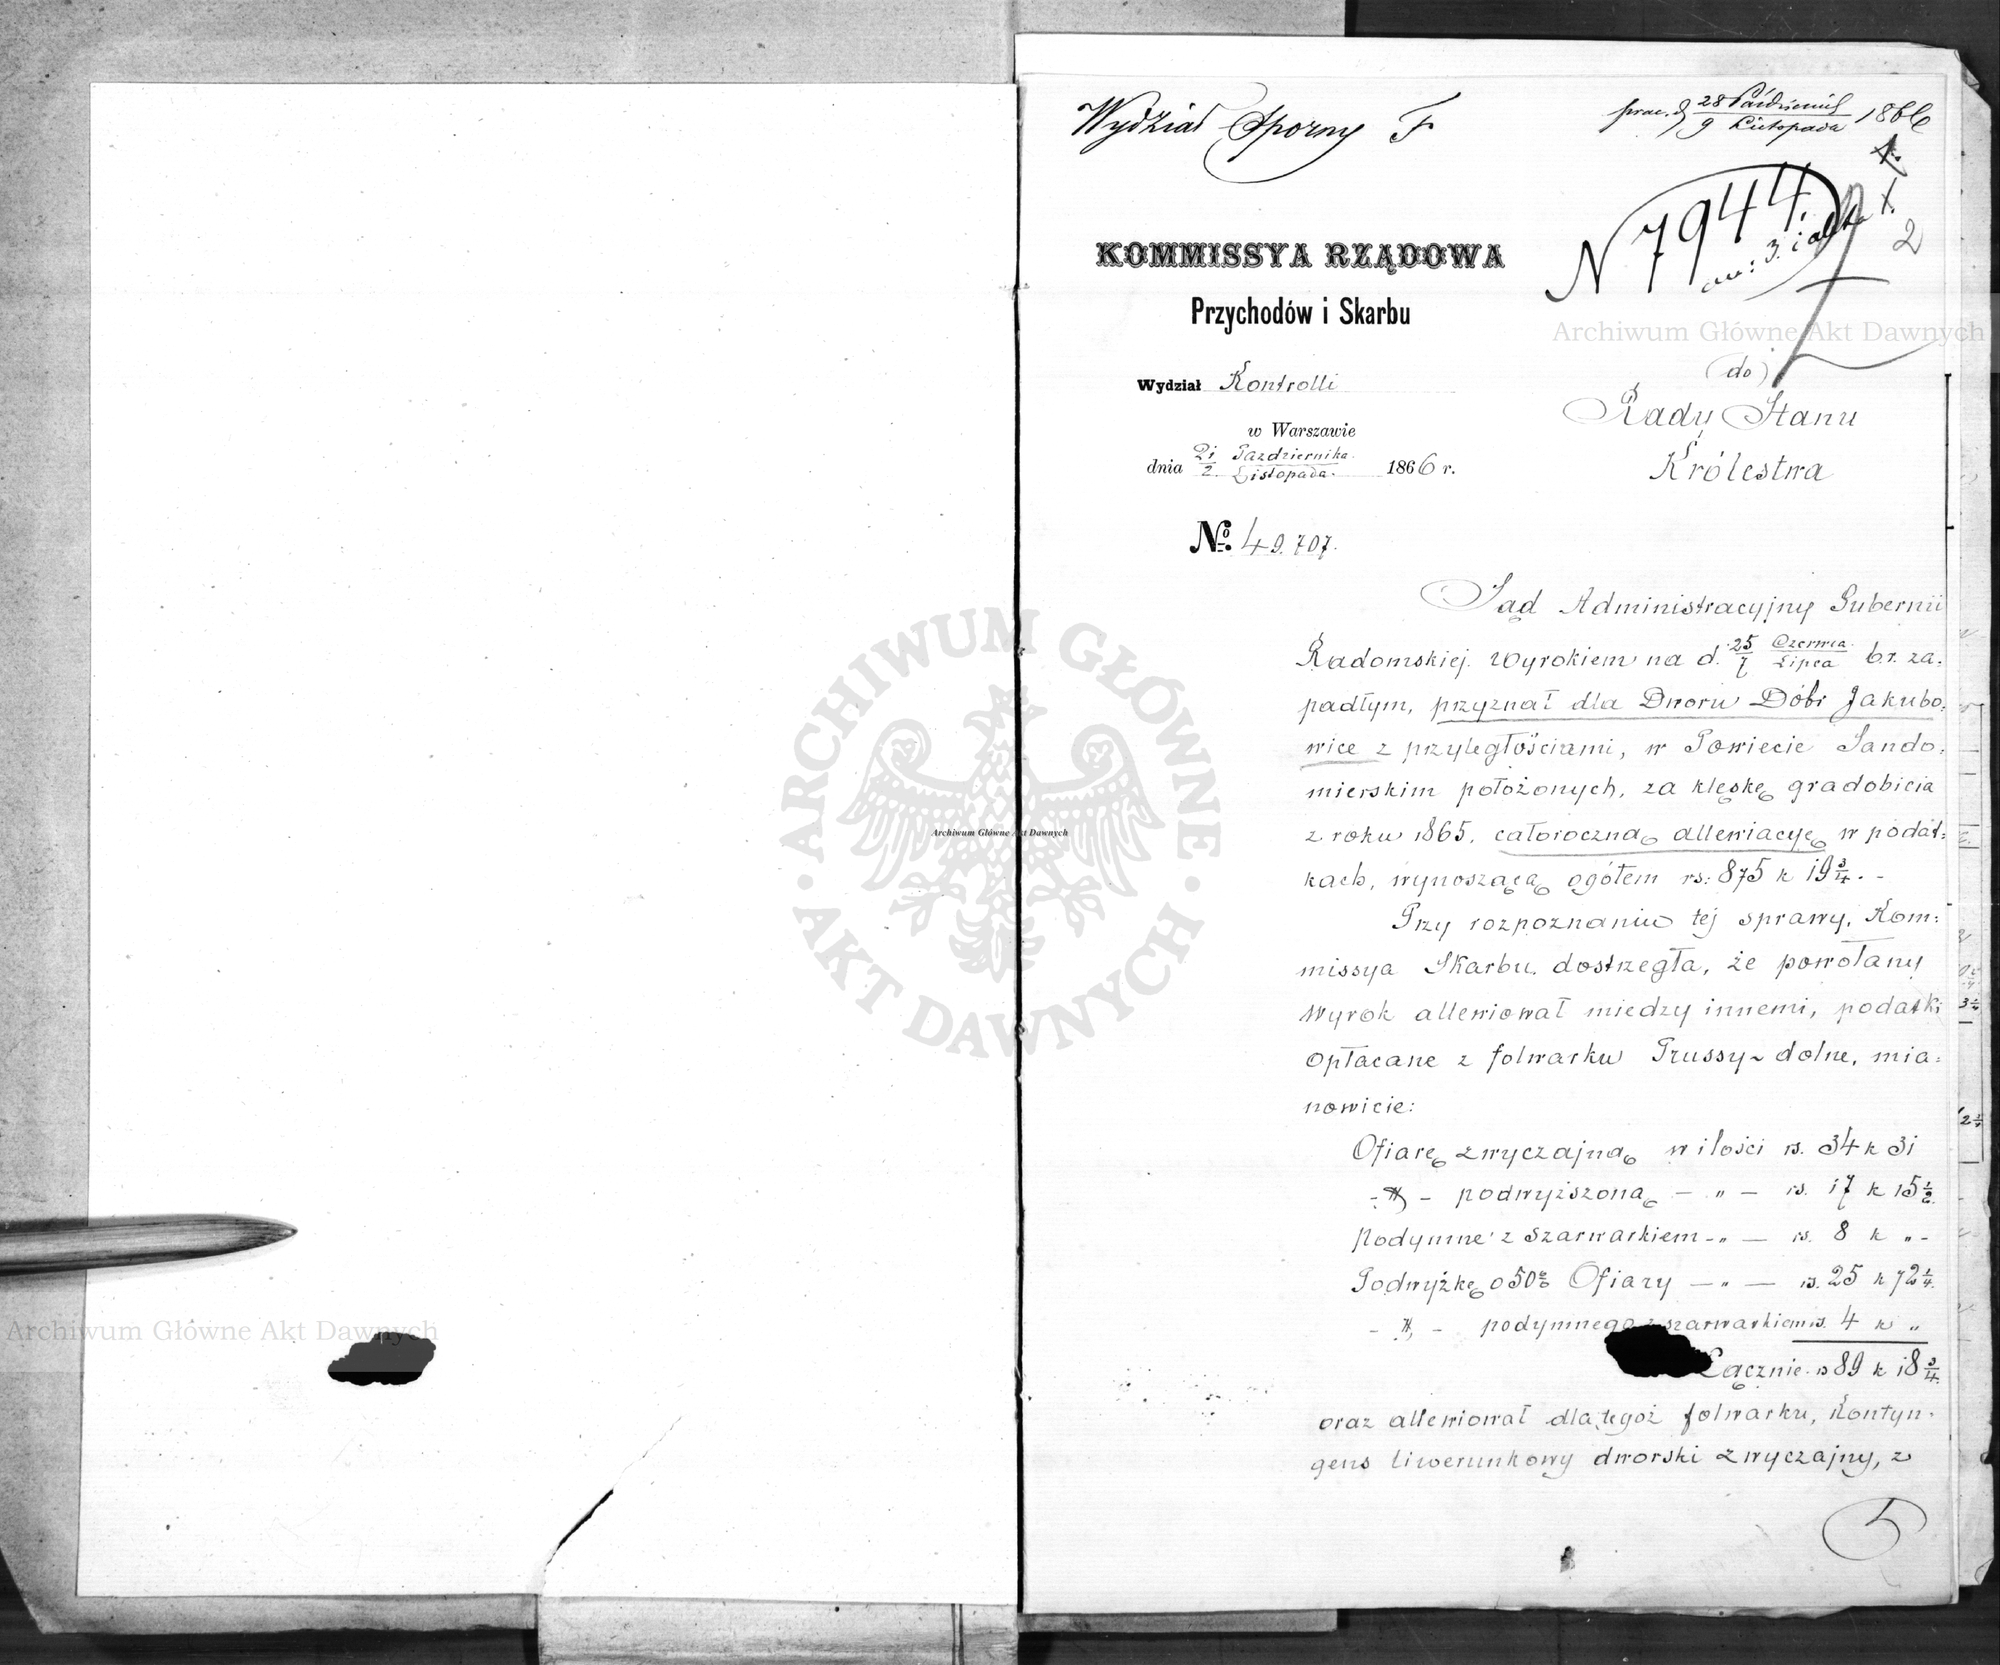 Wydział Sporny F
prez. d. 28 Październik 1866
9 Listopada
N 7944
2
KOMMISSYA RZĄDOWA
Przychodów i Skarbu
Archiwum Główne Akt Dawnych
Wydział Kontrolli
(do)
Rady Stanu
w Warszawie
dnia 21 Października 1866 r.
2 Listopada
Królestwa
No. 49.707.
Sąd Administracyjny Gubernii
Radomskiej Wyrokiem na d. 25/7 Czerwca/Lipca b.r. za-
padłym, przyznał dla Dworu Dóbr Jakubo-
wice z przyległościami, w Powiecie Sando-
mierskim położonych, za klęskę gradobicia
z roku 1865, całoroczną allewiacyę w podat-
kach, wynoszącą ogółem rs: 875 k 19 3/4. -
Przy rozpoznaniu tej sprawy, Kom-
missya Skarbu dostrzegła, że powołany
Wyrok allewiował miedzy innemi, podatki
opłacane z folwarku Prussy-dolne, mia-
nowicie:
Ofiarę zwyczajną w ilości rs. 34 k 31
- " - podwyższoną - " - rs. 17 k 15 1/2
Podymne z szarwarkiem - " - rs. 8 k " -
Podwyżkę o 50% Ofiary - " - rs. 25 k 72 1/4.
- " - podymnego z szarwarkiem rs. 4 k "
Łącznie rs 89 k 18 3/4.
oraz allewiował dla tegoż folwarku, Kontyn-
gens liwerunkowy dworski zwyczajny, z
5
ARCHIWUM GŁÓWNE
AKT DAWNYCH
Archiwum Główne Akt Dawnych
Archiwum Główne Akt Dawnych